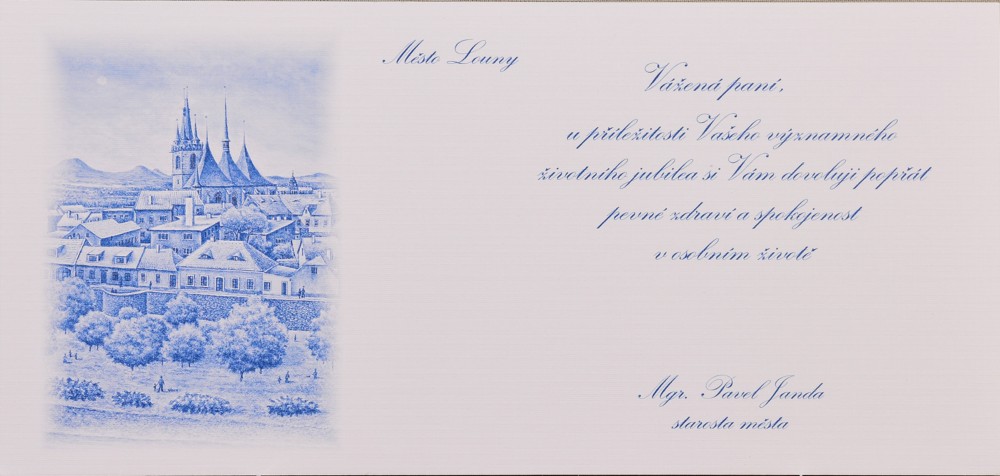 Město Louny
Vážená paní,
u příležitosti Vašeho významného
životního jubilea si Vám dovoluji popřát
pevné zdraví a spokojenost
v osobním životě
Mgr. Pavel Janda
starosta města